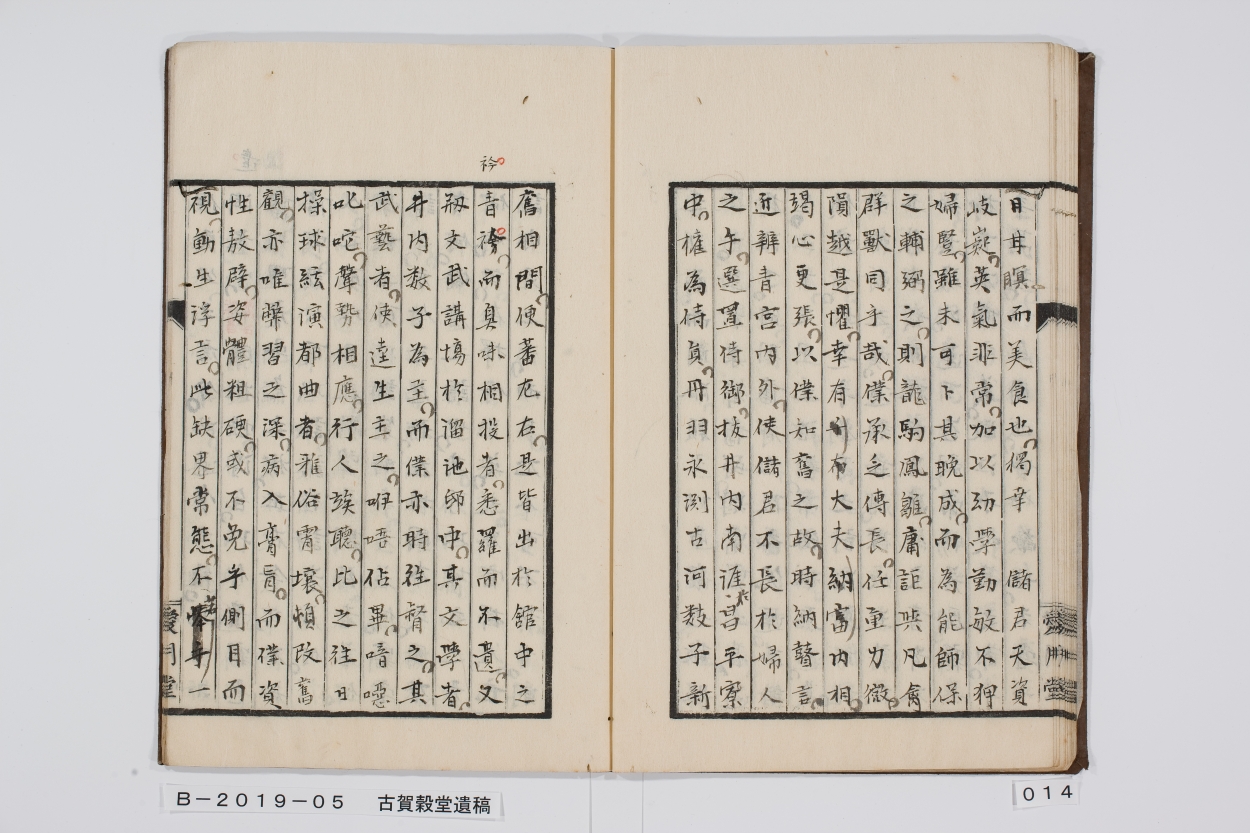 日甘瞑而美食也獨幸儲君天資
岐嶷英氣非常加以幼學勤敏不狎
婦豎雖未可卜其晚成而為能師保
之輔弼之則龍駒鳳雛庸詎與凡禽
群獸同乎哉僕承乏傳長任重力微
隕越是懼幸有大夫納富内相
竭心更張以僕知舊之故時納瞽言
近辨青宮内外使儲君不長於婦人
之手選置侍御拔井内南涯於昌平寮
中擢為侍員丹羽永渕古河数子新
舊相間便蕃左右是皆出於館中之
衿
青衿而臭味相投者悉羅而不遺又
剏文武講場於溜池邸中其文學者
井内数子為主而僕亦時往督之其
武藝者使達生主之咿唔佔畢喑噁
叱咤聲勢相應行人竢聽比之往日
操球絃演都曲者雅俗霄壤頓改舊
觀亦唯驕習之深病入膏肓而僕資
性敖辟姿體粗硬或不免乎側目而
視動生浮言此缺界常態不若一
愛月堂
B－2019－05 古賀穀堂遺稿
014